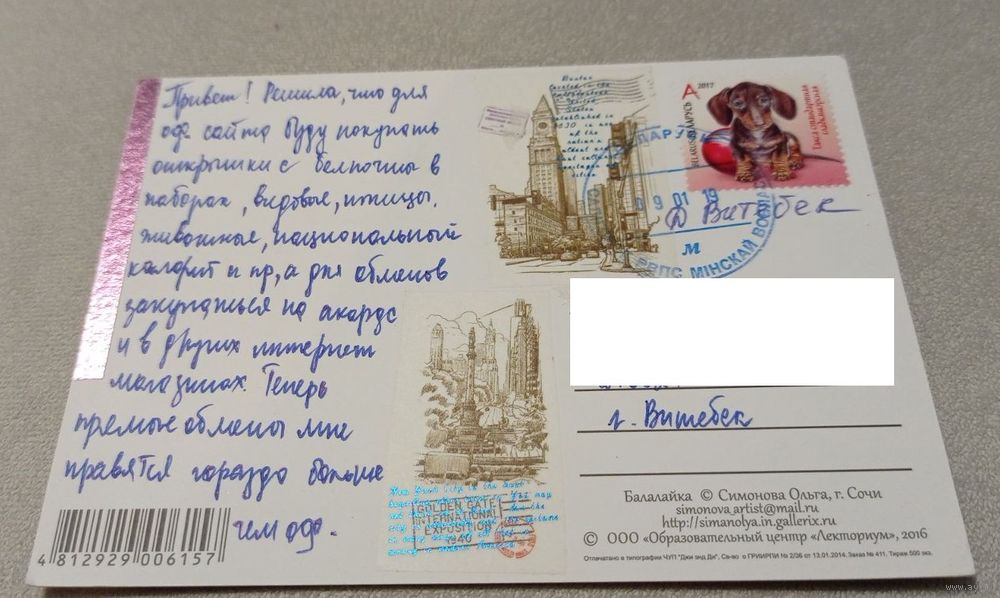 Привет! Решила, что для
оф. сайта буду покупать
открытки с белпочты в
наборах, видовые, птицы,
животные, национальный
калорит и пр, а для обменов
закупаться на акардс
и в других интернет
магазинах. Теперь
прямые обмены мне
нравятся гораздо больше
чем оф.
4 812929 006157
GOLDEN GATE
INTERNATIONAL
EXPOSITION
1940
A 2017
BELARUS БЕЛАРУСЬ
Такса стандартная гладкошерстная
09 01 19
М
РВПС МІНСКАЙ ВОБЛ
Д Витебек
г. Витебек
Балалайка © Симонова Ольга, г. Сочи
simonova_artist@mail.ru
http://simanolya.in.gallerix.ru
© ООО «Образовательный центр «Лекториум», 2016
Отпечатано в типографии ЧУП "Джи энд Ди", Св-во о ГРИИРПИ № 2/36 от 13.01.2014. Заказ № 411. Тираж 500 экз.